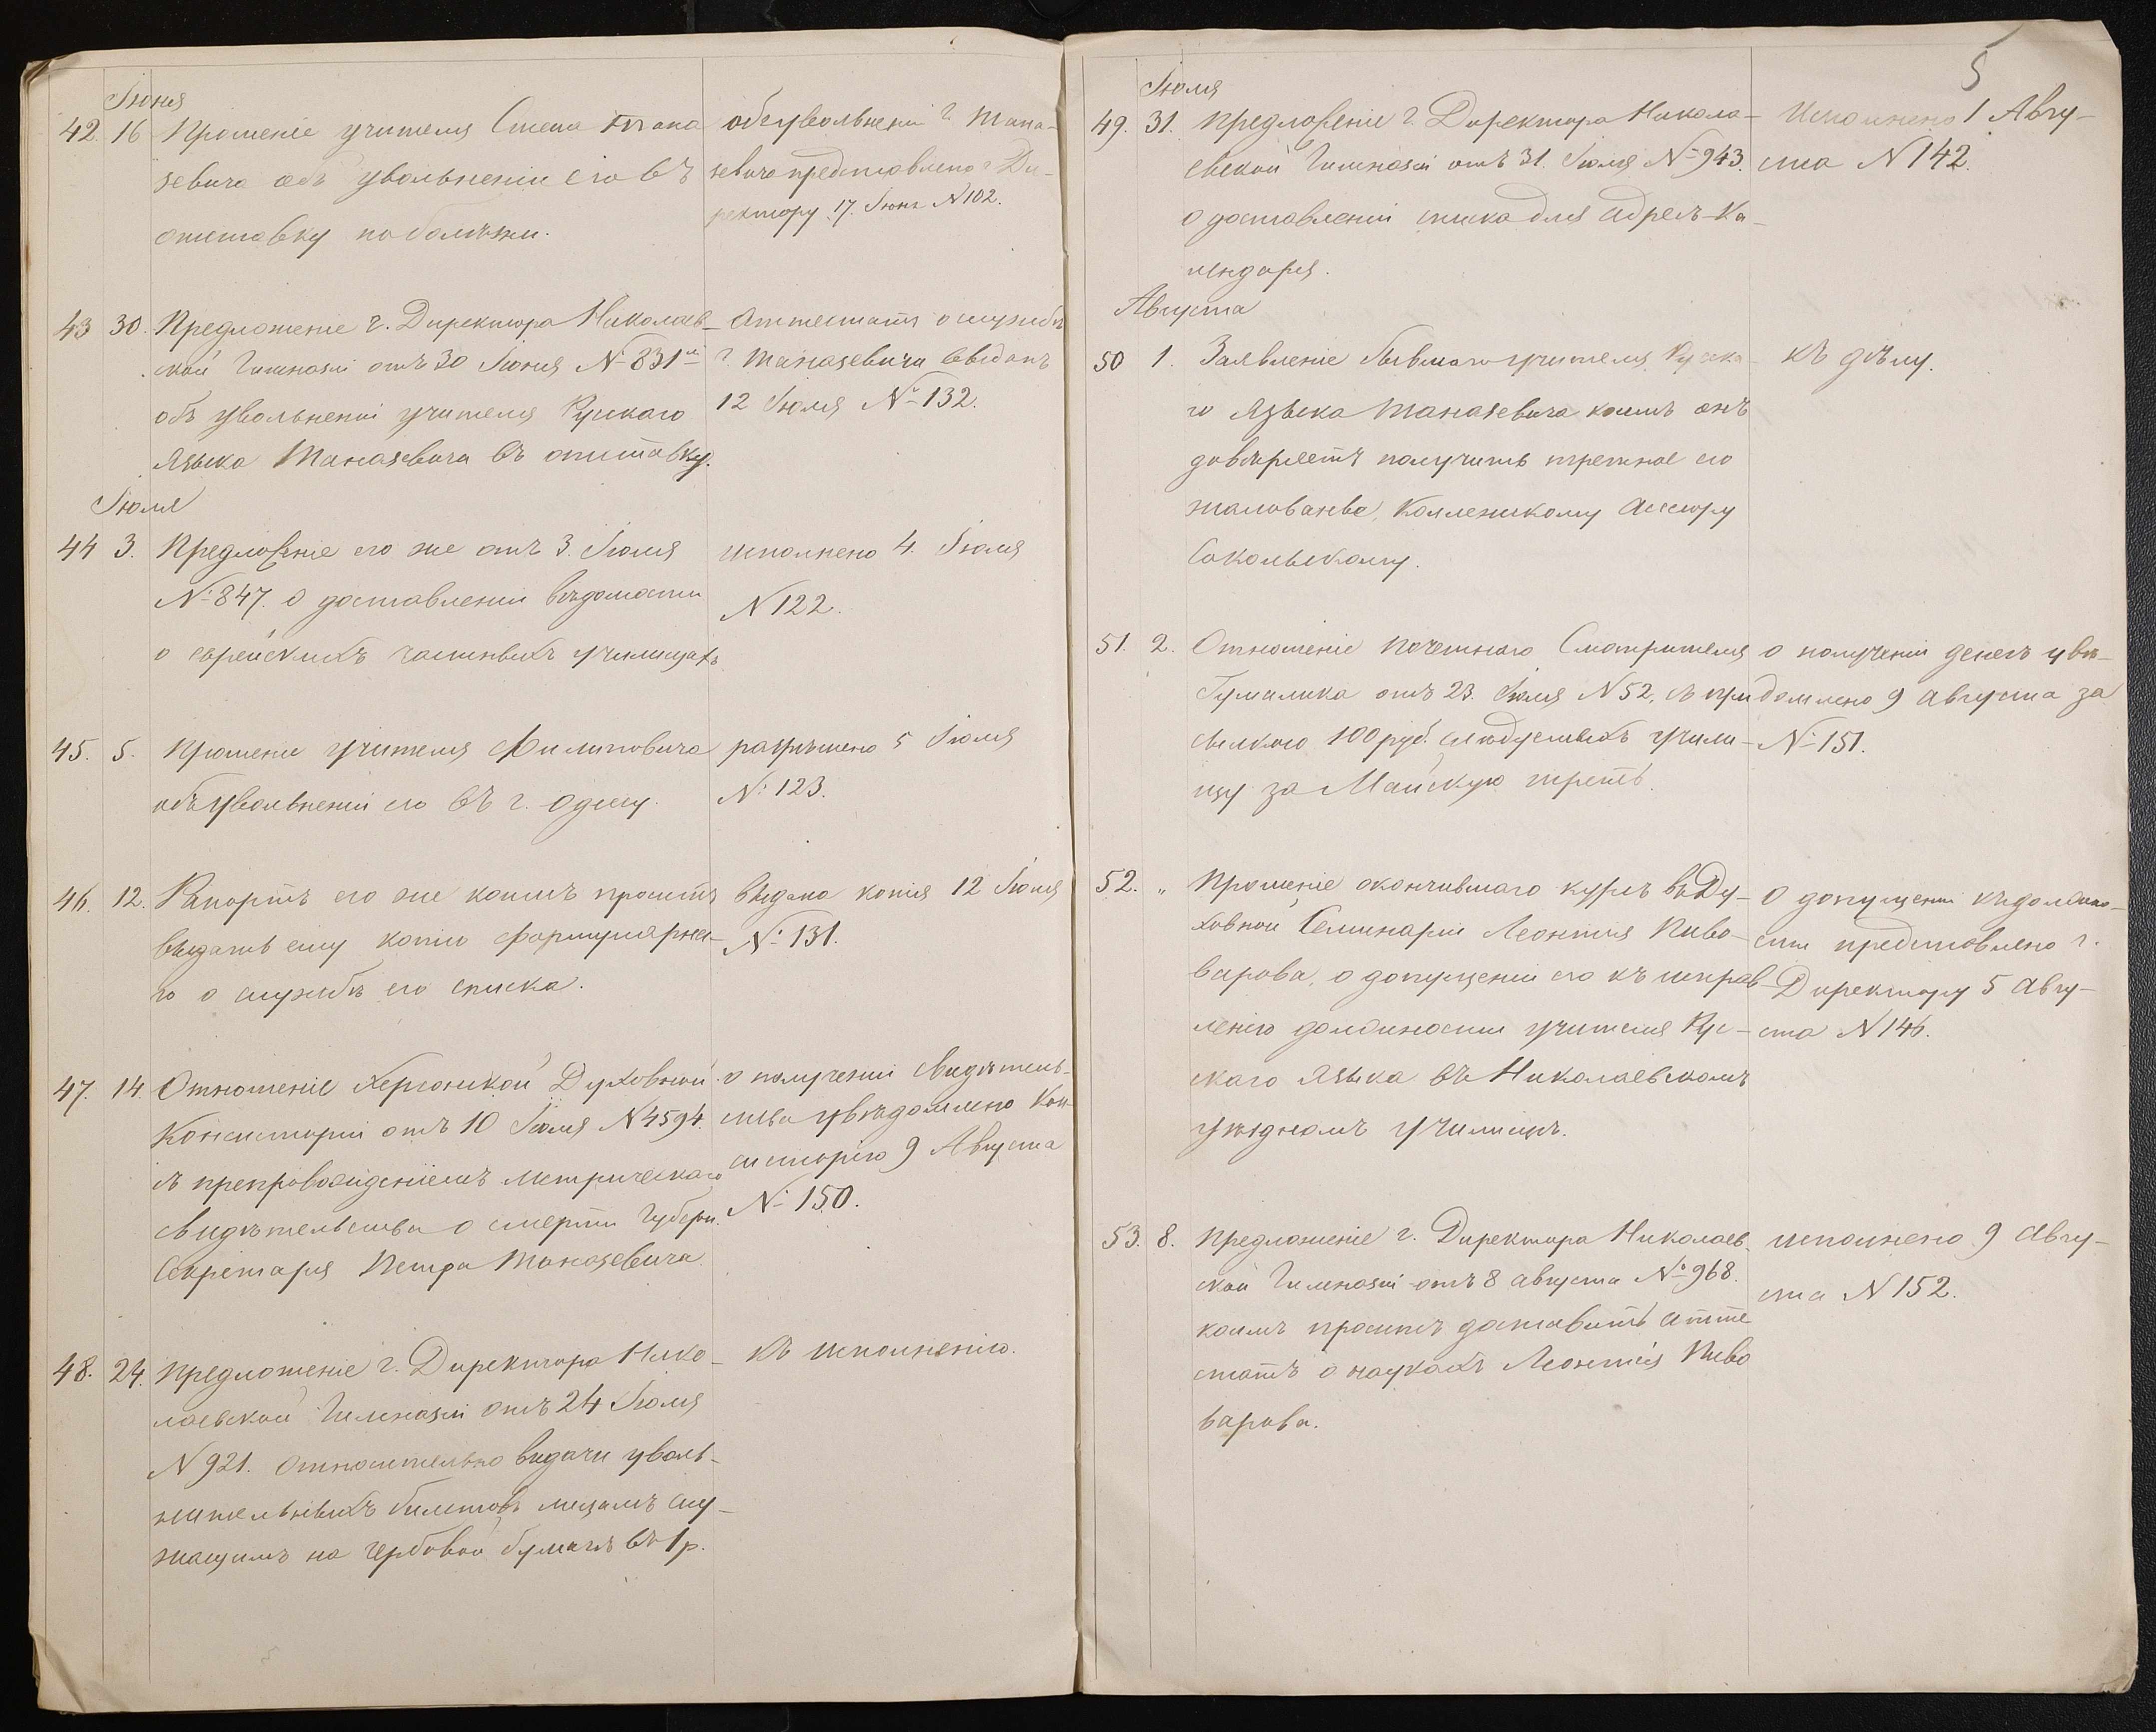 Іюня
42. 16 Прошеніе учителя Степа Тана
зевича объ увольненіи его въ
отставку по болѣзни.
объ увольненіи г. Тана-
зевича представлено г. Ди-
ректору 17. Іюня N 102.
43 30. Предложеніе г. Директора Николаев-
ской Гимназіи отъ 30 Іюня № 831
объ увольненіи учителя Рускаго
языка Таназевича въ отставку.
Аттестатъ о службѣ
г. Таназевича выданъ
12 Іюля № 132.
Іюля
44 3. Предложеніе его же отъ 3. Іюля
№ 847. о доставленіи вѣдомости
о еврейскихъ частныхъ училищахъ
исполнено 4. Іюля
N 122.
45. 5. Прошеніе учителя Филиповича
объ увольненіи его въ г. Одессу.
разрѣшено 5 Іюля
№ 123.
46. 12. Рапортъ его же коимъ проситъ
выдать ему копію формулярна-
го о службѣ его списка.
выдана копія 12 Іюля
№ 131.
47. 14. Отношеніе Херсонской Духовной
Консисторіи отъ 10 Іюля N 4594.
съ препровожденіемъ метрическаго
свидѣтельства о смерти Губерн.
Секретаря Петра Таназевича.
о полученіи свидѣтель-
ства увѣдомлено Кон-
систорію 9 Августа
№ 150.
48. 24. Предложеніе г. Директора Нико-
лаевской Гимназіи отъ 24 Іюля
N 921. относительно видачи уволь-
нительныхъ билетовъ лицамъ слу-
жащимъ на гербовой бумагѣ въ 1 р.
Къ исполненію.
5
Іюля
49. 31. Предложеніе г. Директора Никола-
евской Гимназіи отъ 31. Іюля № 943.
о доставленіи списка для Адресъ-Ка-
лендаря.
Исполнено 1 Авгу-
ста N 142.
Августа
50 1. Заявленіе бывшаго учителя Руска
го языка Таназевича коимъ онъ
довѣряетъ получить третное его
жалованье, Коллежскому Асессору
Сокольскому.
Къ дѣлу.
51. 2. Отношеніе почетнаго Смотрителя
отъ 23. Іюля N 52, съ при
сылкою 100 руб. слѣдуемыхъ учили-
щу за Майскую треть.
о полученіи денегъ увѣ-
домлено 9 августа за
№ 151.
52. „ Прошеніе окончившаго курсъ въ Ду-
ховной Семинаріи Леонтія Пиво-
варова, о допущеніи его къ исправ
ленію должности учителя Рус-
скаго языка въ Николаевскомъ
уѣздномъ училищѣ.
О допущеніи къ должно-
сти представлено г.
Директору 5 Авгу-
ста N 146.
53. 8. Предложеніе г. Директора Николаев-
ской Гимназіи отъ 8 августа № 968.
коимъ проситъ доставить атте
статъ о наукахъ Леонтія Пиво
варова.
исполнено 9 Авгу-
ста N 152.